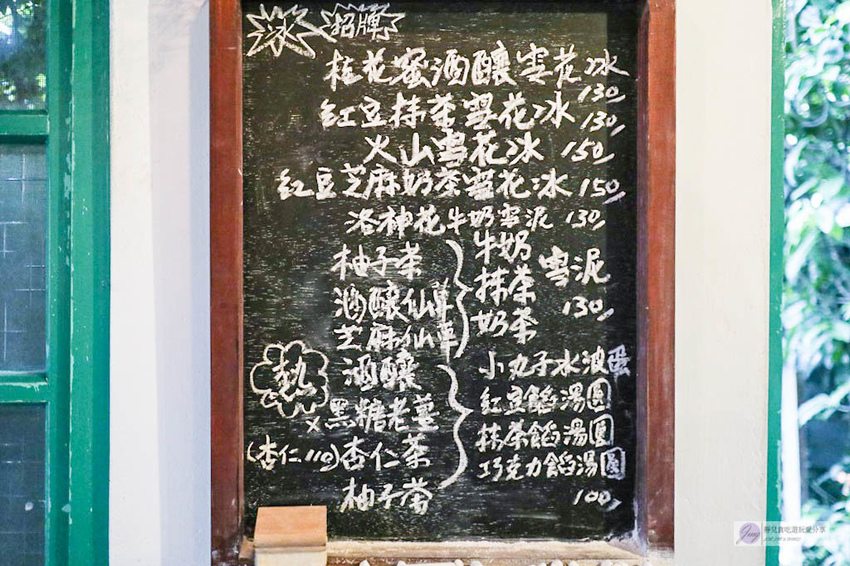 冰 招牌
桂花蜜酒釀雪花冰 130
紅豆抹茶雪花冰 130
火山雪花冰 150
紅豆芝麻奶茶雪花冰 150
洛神花牛奶雪泥 130
柚子茶
酒釀仙草
芝麻仙草
牛奶
抹茶
奶茶
雪泥
130
熱
酒釀
x黑糖老薑
(杏仁110)杏仁茶
柚子茶
小丸子水波蛋
紅豆餡湯圓
抹茶餡湯圓
巧克力餡湯圓
100